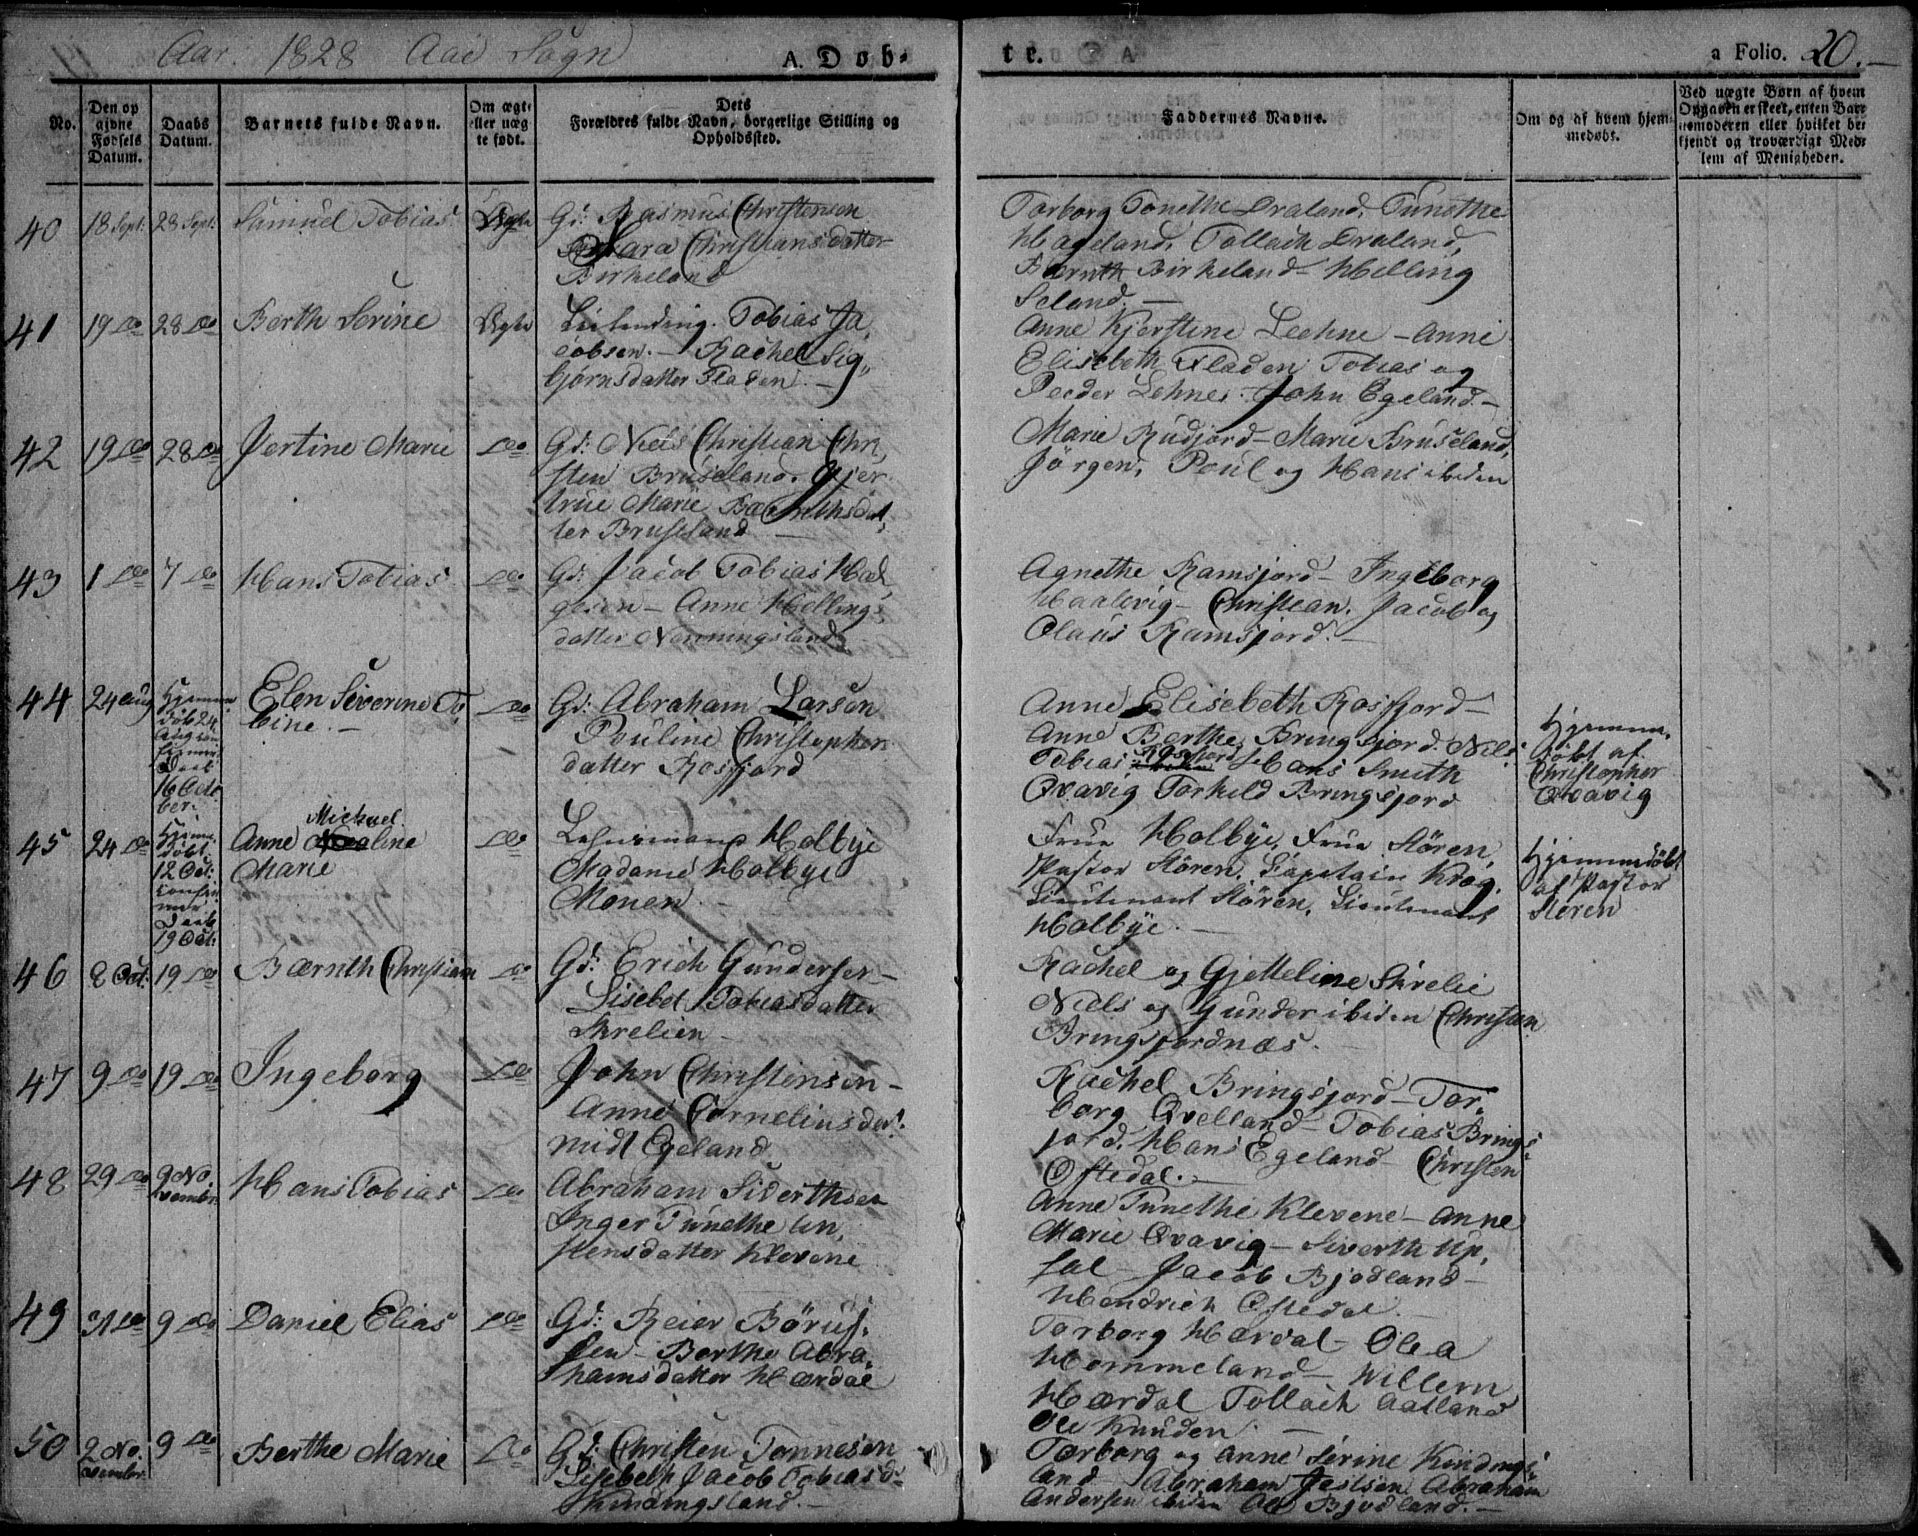 Aar. 1828 Aae Sogn
A. Dob-
te.
a Folio. 20.
No.
Den op
givne
Fødsels
Datum.
Daabs
Datum.
Barnets fulde Navn.
Om ægte
eller uæg
te født.
Dets
Forældres fulde Navn, borgerlige Stilling og
Opholdssted.
Faddernes Navne.
Om og af hvem hjem-
medøbt.
Ved uægte Børn af hvem
Opgaven er skeet, enten Bar-
nemoderen eller hvilket be-
kjendt og troværdigt Med-
lem af Menigheden.
40 18 Sept: 28 Sept: Samuel Tobias Ægte
Gd: Rasmus Christensen
Sara Christiansdatter
Birkeland
Torborg Tonethe Draland, Tunethe
Hageland, Tollach Draland,
Bernth Birkeland - Helling
Seland. -
41 19 do 28 do Berth Serine Ægte
Leilending. Tobias Ja
cobsen. - Rachel Sig„
bjørnsdatter Fladen. -
Anne Kjerstine Leehne - Anne
Elisebeth Fladen Tobias og
Peeder Lehne. John Egeland. -
42 19 do 28 do Jertine Marie do
Gd: Niels Christian Chri„
sten Bruseland. Gjer
true Marie Bærnthsdat„
ter Bruseland -
Marie Rudjord - Marie Bruseland,
Jörgen, Poul og Hans ibiden
43 1 do 7 do Hans Tobias do
Gd: Jacob Tobias Hæl„
gesen - Anne Hellings
datter Nenningsland
Agnethe Ramsjord - Ingeborg
Haalevig - Christean. Jacob og
Olaus Ramsjord. -
44 24 Aug Hjemme
döb 24
Aug con
firmeret
Daab
16 Octo
ber.
Elen Siverine To„
bine. -
do
Gd: Abraham Larsen
Pouline Christopher
datter Rosfjord
Anne Elisebeth Rosfjord -
Anne Berthe Bringsjord. Niels
Tobias Rosfjord Hans Smith
Qvavig Torkeld Bringsjord
Hjemme„
döbt af
Christopher
Qvavig
45 24 do Hjeme
döbt
12 Oct:
confir
mer
Daab
19 Oct:
Michael
Anne aline
Marie
do
Lehnsmand Holbye
Madame Holbye
Monen. -
Frue Holbye, Frue Stören,
Pastor Stören. Capitain Krog.
Lieutenant Stören. Lieutenant
Holbye. -
Hjemmedöbt
af Pastor
Steren
46 8 Oct: 19 do Bærnth Christian do
Gd: Erich Gundersen -
Lisebet Tobiasdatter
Skrelien -
Rachel og Gjetteline Skrelie
Niels og Gunder ibiden Christen
Bringsjordnæs. -
47 9 do 19 do Ingeborg do
John Christensen -
Anne Cornelius dat:
midt Egeland
Rachel Bringsjord - Tor„
borg Qvelland - Tobias Brings
jord. Hans Egeland - Christen
Oftedal. -
48 29 do 9 No„
vembr. Hans Tobias do
Abraham Siverthsen
Inger Tunethe Un„
stensdatter Klevene
Anne Tunethe Klevene - Anne
Marie Qvavig - Siverth Up„
sal - Jacob Bjodland -
Hendrich Oftedal -
49 31 do 9 do Daniel Elias do
Gd: Reier Börus„
sen - Berthe Abra„
hamsdatter Hærdal
Torborg Hærdal - Olea
Hommeland - Willem
Hærdal Tollach Aatland
Ole Knuden -
50 2 No„
vembr. 9 do Berthe Marie do
Gd: Christen Tonnesen
Lisebeth Jacob Tobiasd:
Kindingsland. -
Torborg og Anne Serine Kindings
land - Abraham Jessen Abraham
Andersen ibiden Ole Bjodland. -